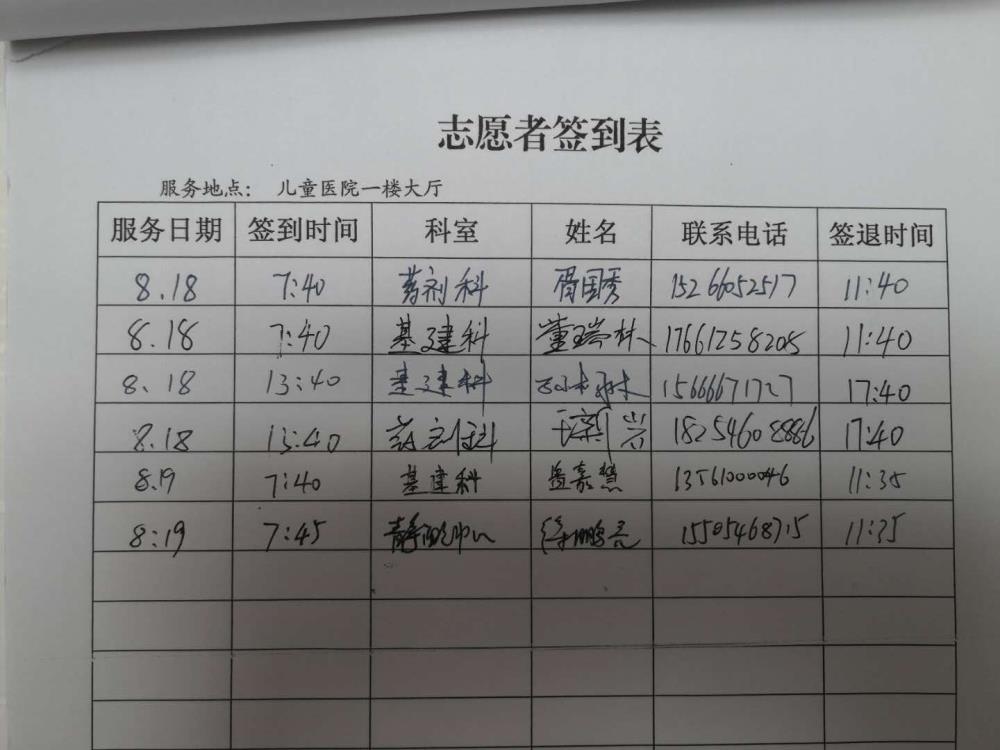 志愿者签到表
服务地点： 儿童医院一楼大厅
服务日期 签到时间 科室 姓名 联系电话 签退时间
8.18 7:40 药剂科 胥国秀 15266052517 11:40
8.18 7:40 基建科 董瑞林 17661258205 11:40
8.18 13:40 基建科 15666671727 17:40
8.18 13:40 药剂科 18254608886 17:40
8.19 7:40 基建科 盖嘉慧 13561000046 11:35
8:19 7:45 静配中心 15505468715 11:35